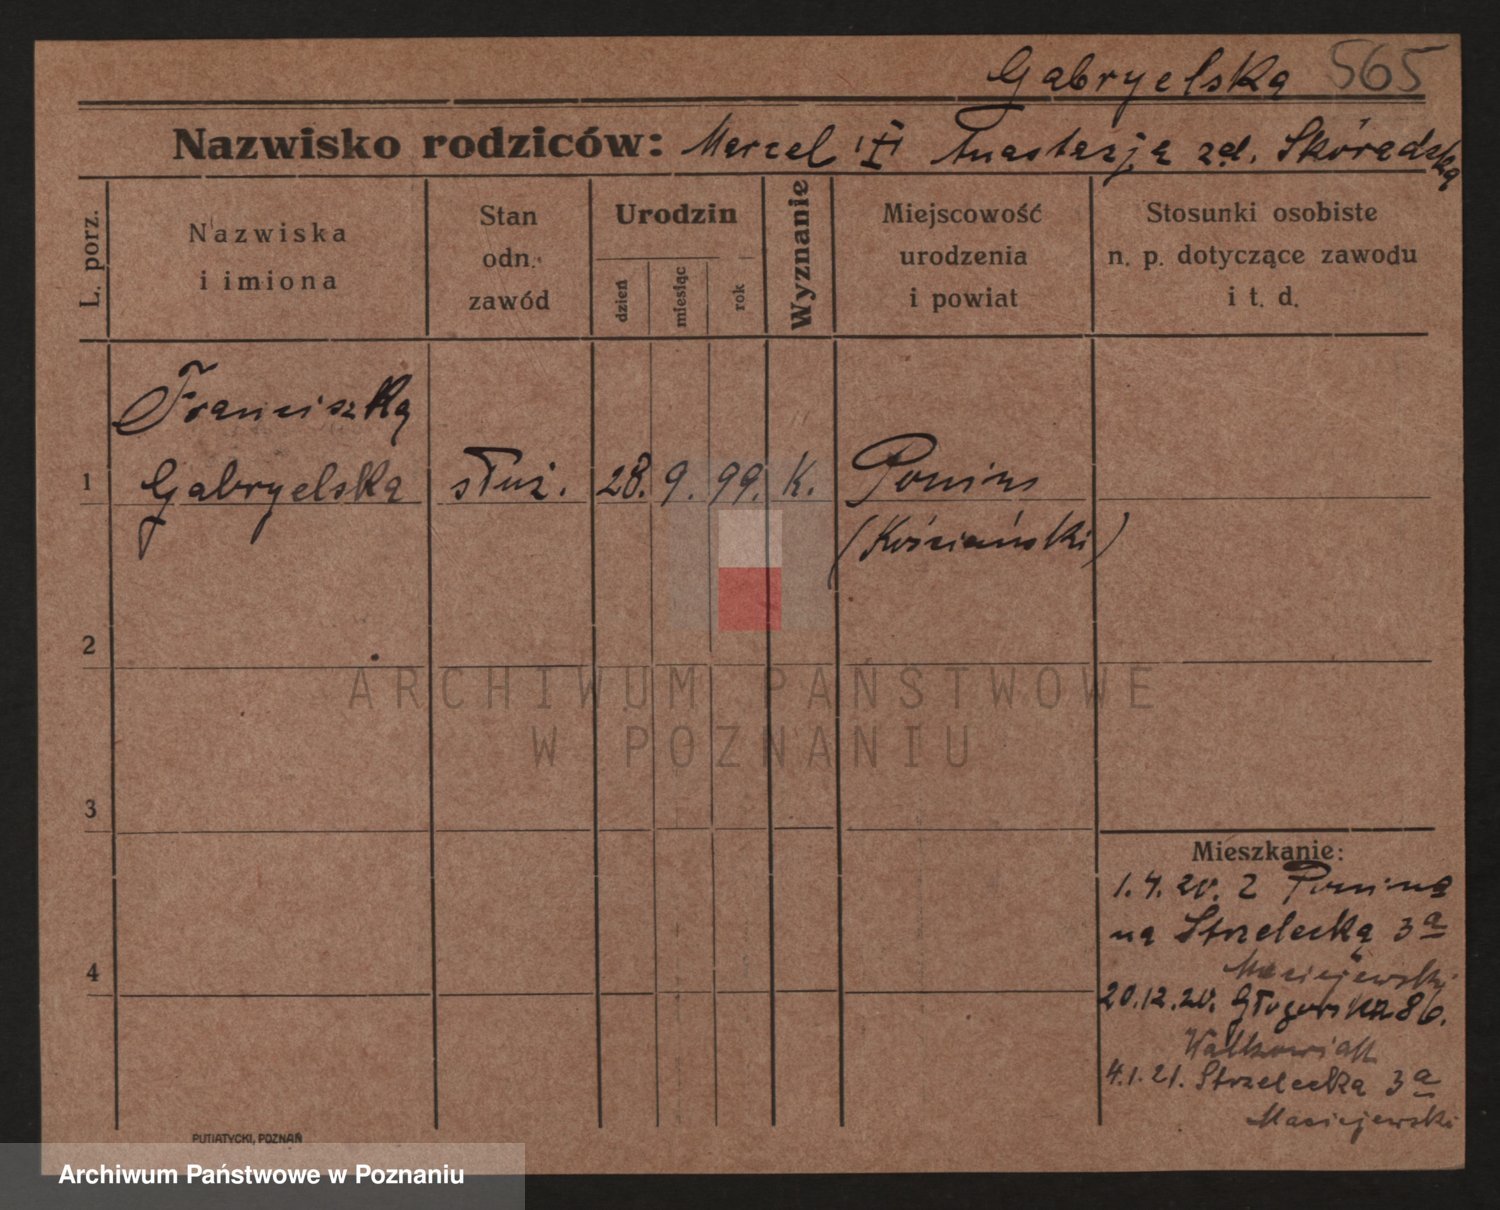 Gabryelska 565
Nazwisko rodziców: Marcel Anastazja zd. Skóradzka
L. porz.
Nazwiska
i imiona
Stan
odn.
zawód
Urodzin
dzień
miesiąc
rok
Wyznanie
Miejscowość
urodzenia
i powiat
Stosunki osobiste
n. p. dotyczące zawodu
i t. d.
Franciszka
1 Gabryelska służ. 28. 9. 99. K. Ponin
(Kościański)
2
ARCHIWUM PAŃSTWOWE
W POZNANIU
3
Mieszkanie:
1.4.20. z Ponina
na Strzelecką 3a
Maciejewski
4
20.12.20. Głogowska 86.
Walkowiak
4.1.21. Strzelecka 3a
Maciejewski
PUTIATYCKI, POZNAŃ
Archiwum Państwowe w Poznaniu